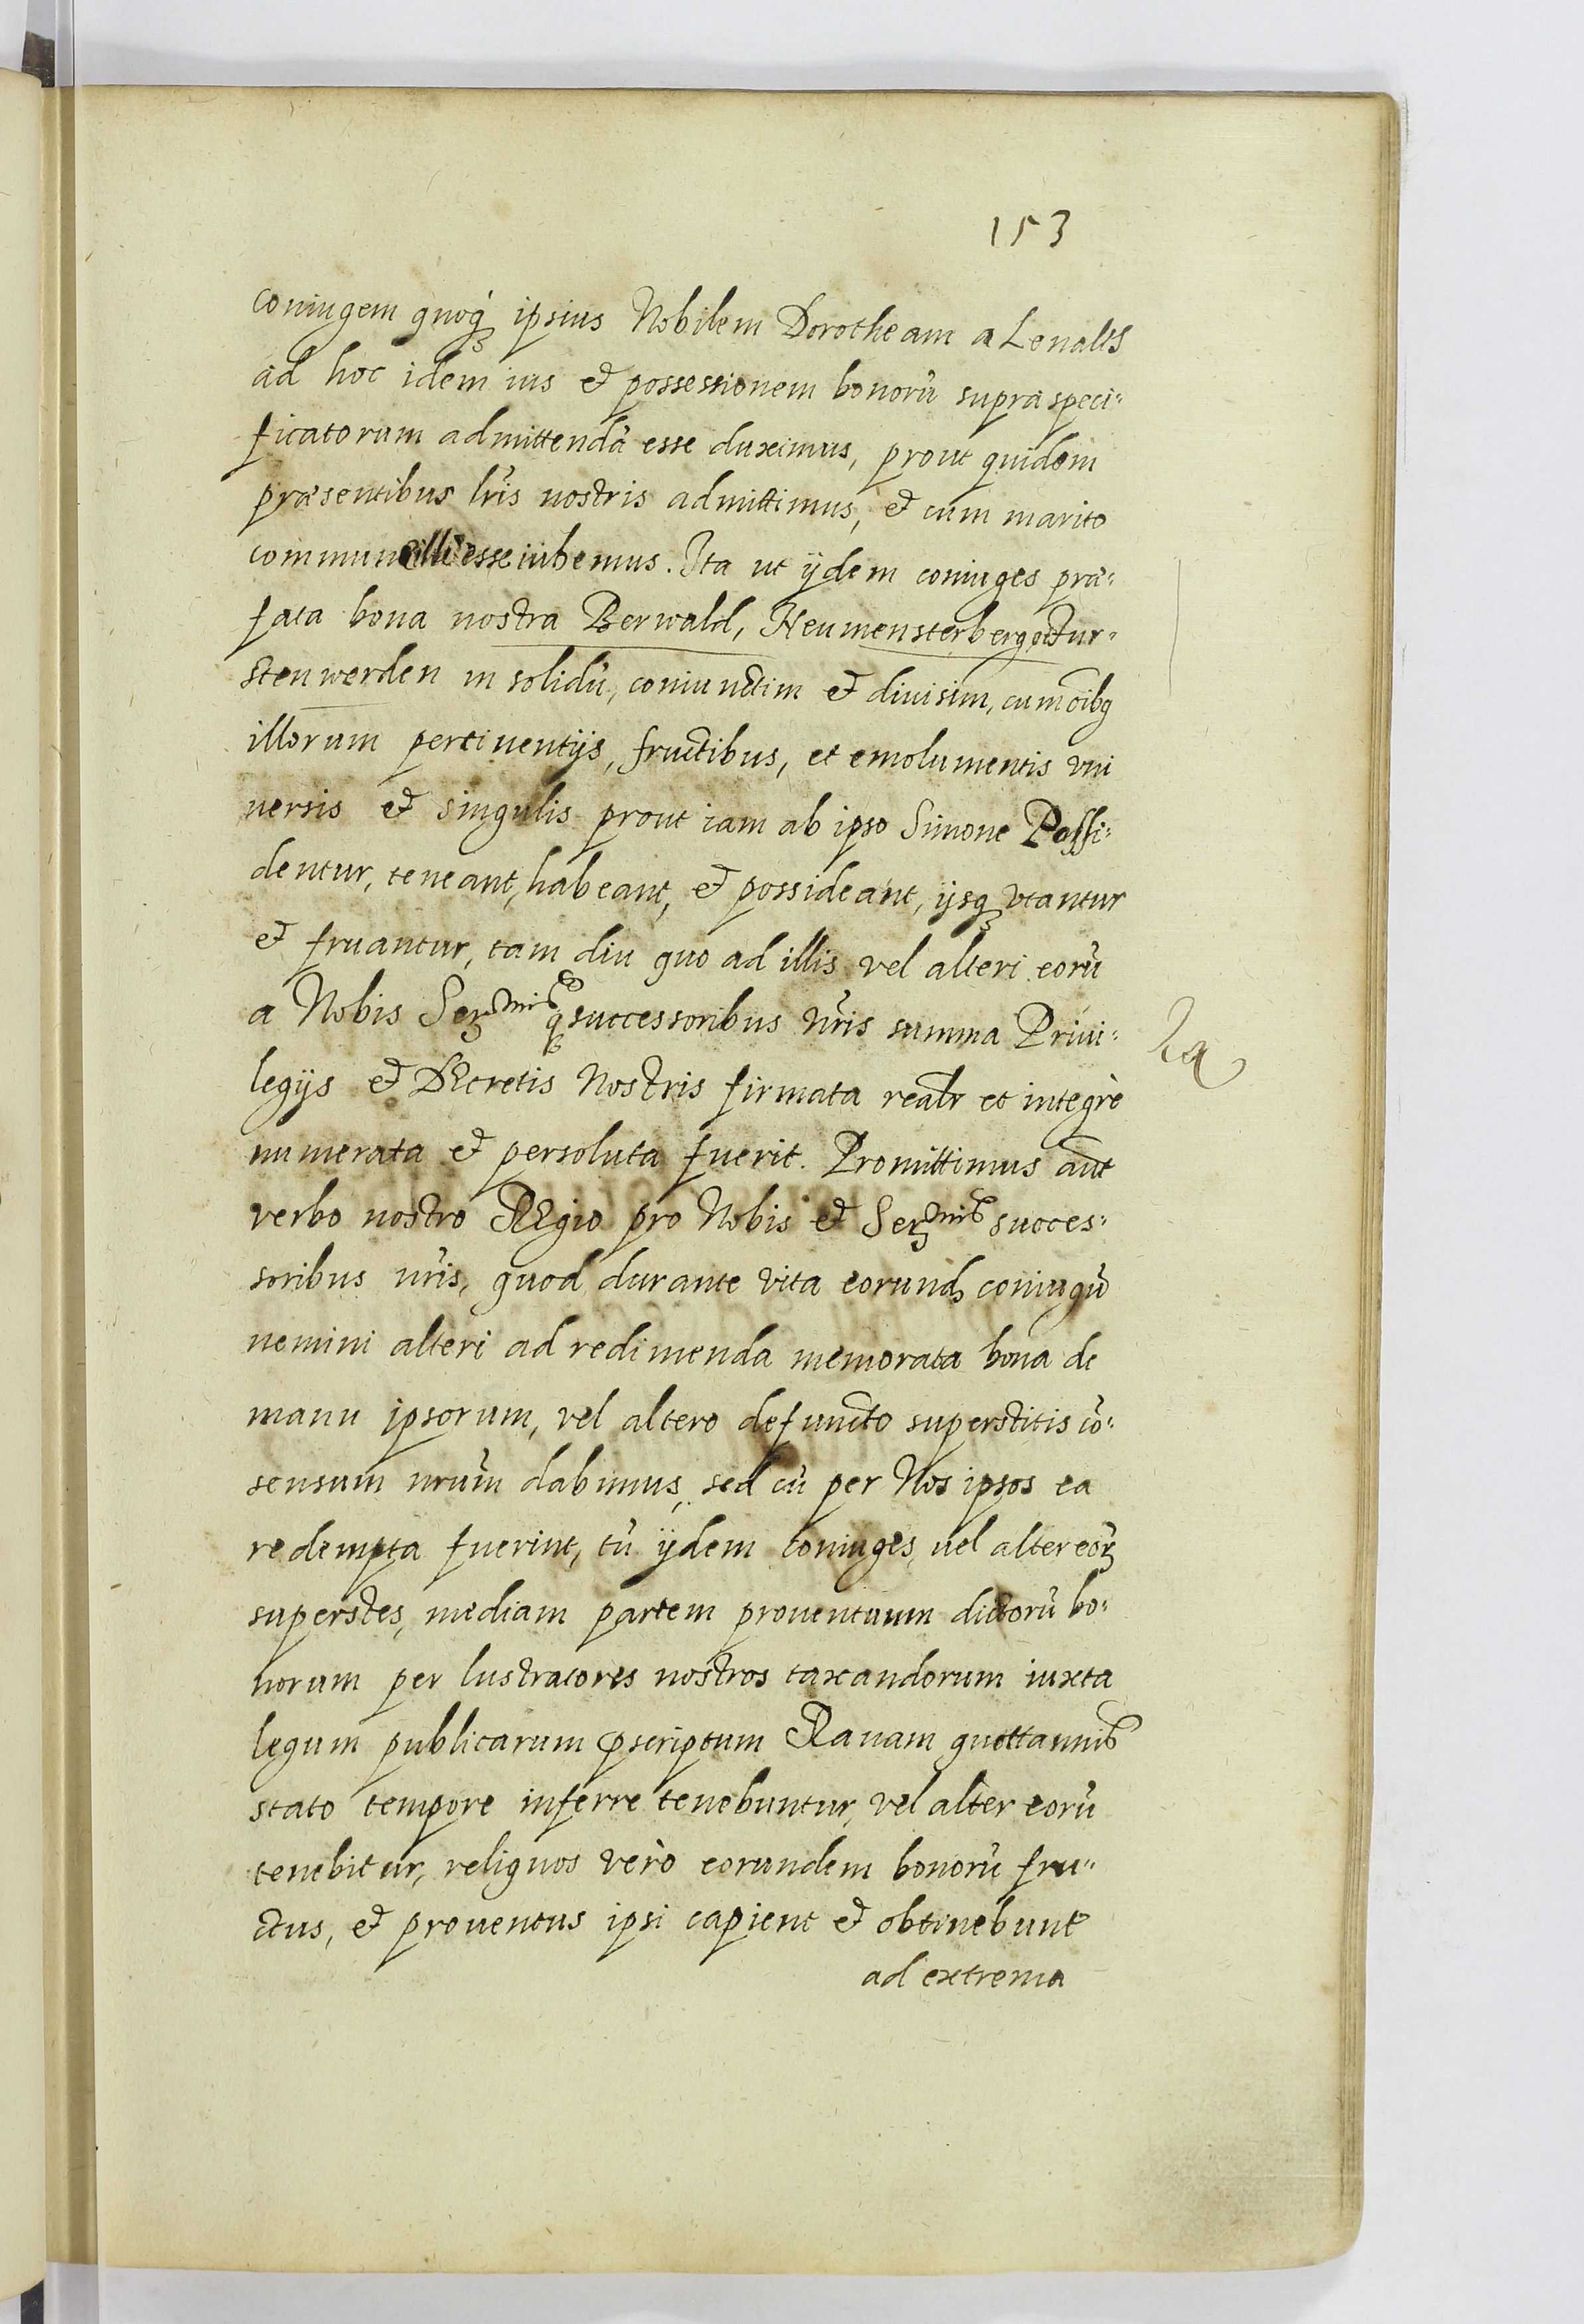 153
coniugem quoq́ꝫ ipsius Nobilem Dorotheam a Lenalts
ad hoc idem ius et possessionem bonorū supra speci-
ficatorum admittendā esse duximus, prout quidem
præsentibus lr̃is nostris admittimus, et cum marito
commune illi esse iubemus. Ita ut ijdem coniuges præ-
fata bona nostra Berwald, Neumensterberg et Fur-
stenwerden in solidū, coniunctim et diuisim, cum oĩbꝫ
illorum pertinentijs, fructibus, et emolumentis vni
uersis et singulis prout iam ab ipso Simone Possi-
dentur, teneant, habeant, et possideant, ijsqꝫ vtantur
et fruantur, tam diu quo ad illis vel alteri eorū
a Nobis Serꝫmisqꝫ successoribus nr̃is summa Priui-
legijs et DEcretis Nostris firmata realr et integrè
numerata et persoluta fuerit. Promittimus aũt
verbo nostro REgio pro Nobis et Serꝫmis succes-
soribus nr̃is, quod durante vita eorundꝫ coniugū
nemini alteri ad redimenda memorata bona de
manu ipsorum, vel altero defuncto superstitis cō-
sensum nr̃um dabimus, sed cū per Nos ipsos ea
redempta fuerint, tū ijdem coniuges, uel alter eorꝫ
superstes, mediam partem prouentuum dictorū bo-
norum per lustratores nostros taxandorum iuxta
legum publicarum pscriptum Rauam quottannis
stato tempore inferre tenebuntur, vel alter eorū
tenebitur, reliquos verò eorundem bonorū fru-
ctus, et prouentus ipsi capient et obtinebunt
ad extrema